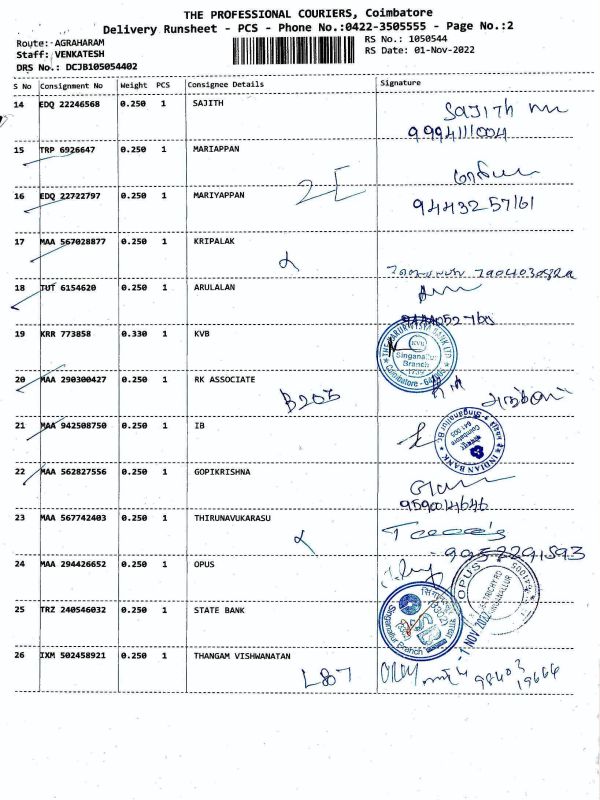 THE PROFESSIONAL COURIERS, Coimbatore
Delivery Runsheet - PCS - Phone No.:0422-3505555 - Page No.:2
Route: AGRAHARAM RS No.: 1050544
Staff: VENKATESH RS Date: 01-Nov-2022
DRS No.: DCJB105054402
S No Consignment No Weight PCS Consignee Details Signature
14 EDQ 22246568 0.250 1 SAJITH Sajith
9994111004
15 TRP 6926647 0.250 1 MARIAPPAN
2E
16 EDQ 22722797 0.250 1 MARIYAPPAN 9443257161
17 MAA 567028877 0.250 1 KRIPALAK
18 TUT 6154620 0.250 1 ARULALAN
19 KRR 773858 0.330 1 KVB
THE KARUR VYSYA BANK LTD
KVB
Singanallur
Branch
1739
Coimbatore
20 MAA 290300427 0.250 1 RK ASSOCIATE
B203
21 MAA 942508750 0.250 1 IB
INDIAN BANK
Singanallur Br.
Coimbatore
641 005
22 MAA 562827556 0.250 1 GOPIKRISHNA
9590014646
23 MAA 567742403 0.250 1 THIRUNAVUKARASU
9952291593
24 MAA 294426652 0.250 1 OPUS
OPUS
TRICHY RD
SINGANALLUR
641005
25 TRZ 240546032 0.250 1 STATE BANK
SBI
Singanallur Branch
1 NOV 2022
26 IXM 502458921 0.250 1 THANGAM VISHWANATAN
L87
98403
19664